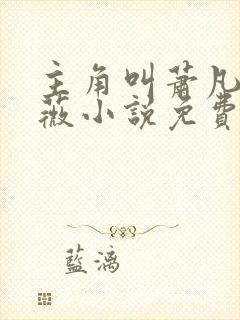 主角叫蕭凡
薇小說免費
藍漓